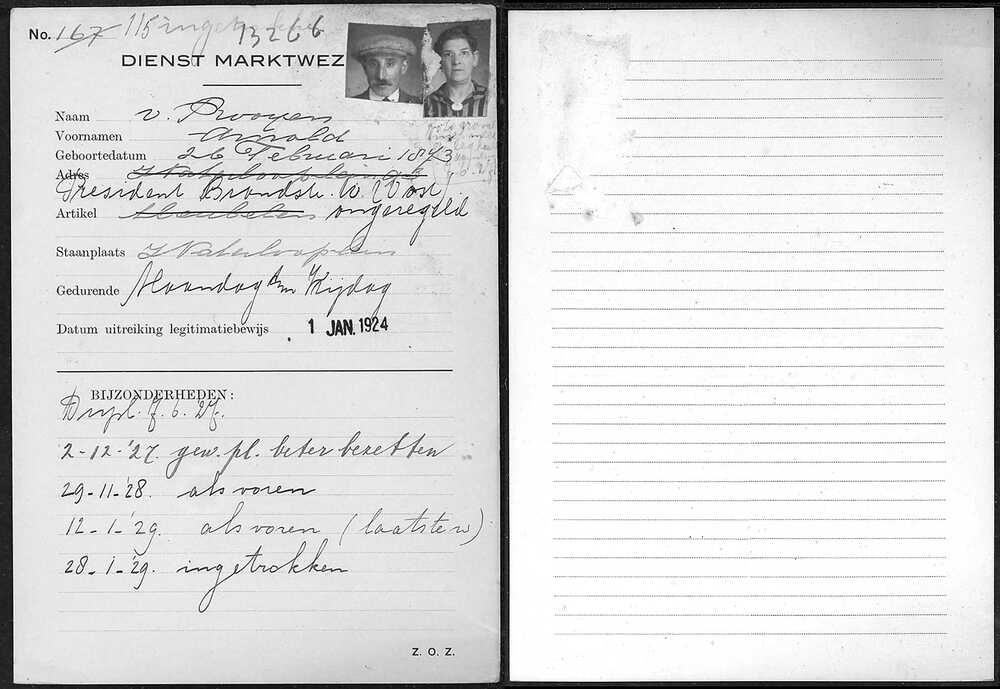 No. 167 115 ingetrokken 13266
DIENST MARKTWEZ
Naam v. Prooyen
Voornamen Arnold
Geboortedatum 26 Februari 1873
Adres Waterlooplein
President Brandstr. W. 7 Oost
Artikel Meubelen ongeregeld
Staanplaats Waterlooplein
Gedurende Maandag t/m Vrijdag
Datum uitreiking legitimatiebewijs 1 JAN. 1924
BIJZONDERHEDEN:
Dupl. 7.6.'27.
2-12-'27. gew. pl. beter bezetten
29-11-'28. als voren
12-1-'29. als voren (laatste w)
28-1-'29. ingetrokken
Z. O. Z.